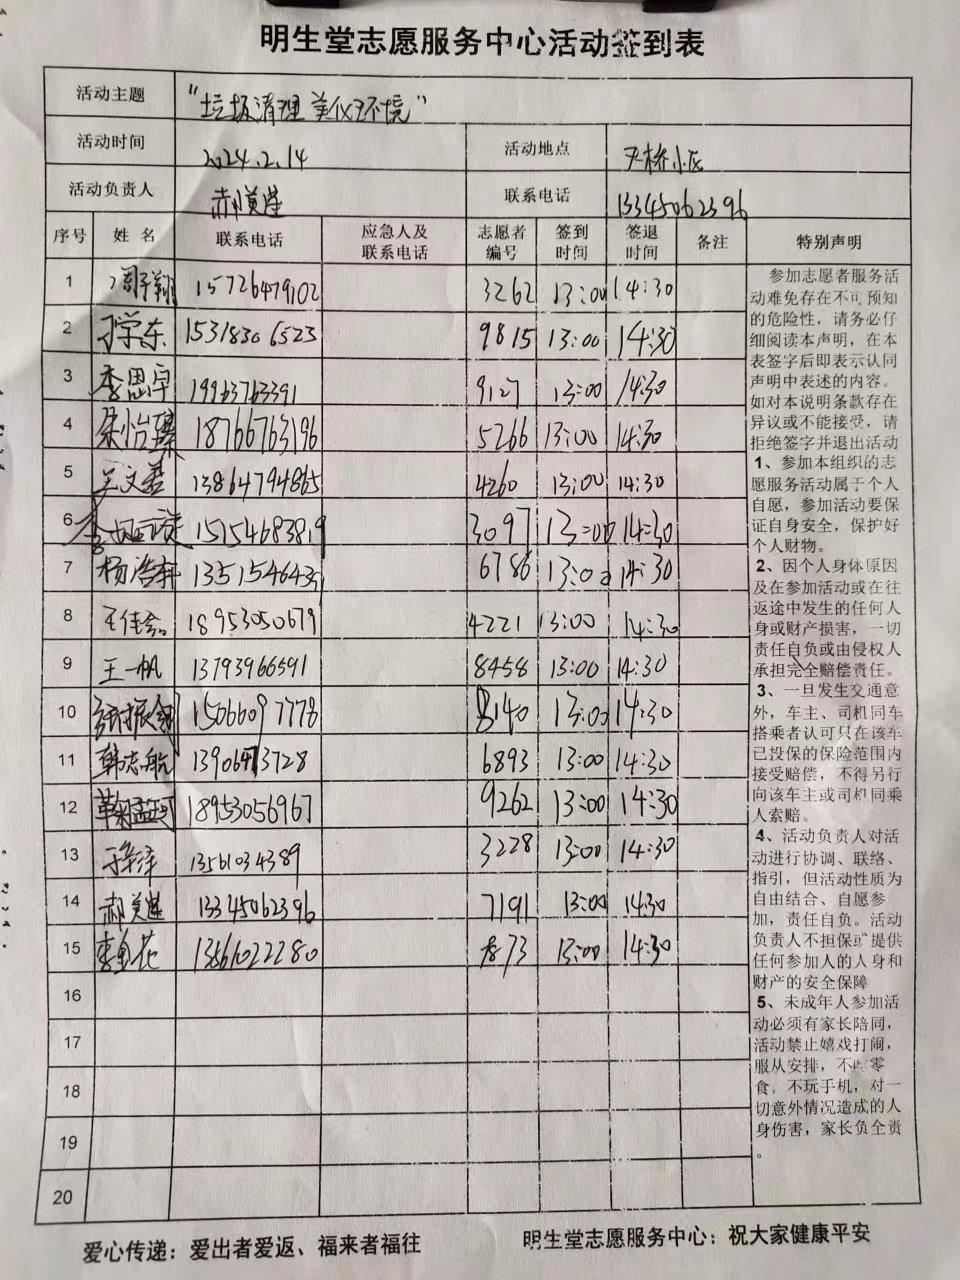 明生堂志愿服务中心活动签到表
活动主题 “垃圾清理 美化环境”
活动时间 2024.2.14 活动地点 尹桥小区
活动负责人 郝美莲 联系电话 13345062396
序号 姓 名 联系电话 应急人及联系电话 志愿者编号 签到时间 签退时间 备注 特别声明
1 周子翔 15726479102 3262 13:00 14:30
2 于学东 15318306523 9815 13:00 14:30
3 李思卓 19963763391 9127 13:00 14:30
4 朱怡臻 18766763196 5266 13:00 14:30
5 吴文君 13864794865 4260 13:00 14:30
6 15154683819 3097 13:00 14:30
7 杨浩轩 6786 13:00 14:30
8 18953050679 4221 13:00 14:30
9 王一帆 13793966591 8458 13:00 14:30
10 15066097778 8140 13:00 14:30
11 韩志航 13906473728 6893 13:00 14:30
12 18953056967 9262 13:00 14:30
13 13561034389 3228 13:00 14:30
14 郝美莲 13345062396 7191 13:00 14:30
15 13561022280 13:00 14:30
16
17
18
19
20
参加志愿者服务活
动难免存在不可预知
的危险性，请务必仔
细阅读本声明，在本
表签字后即表示认同
声明中表述的内容。
如对本说明条款存在
异议或不能接受，请
拒绝签字并退出活动
1、参加本组织的志
愿服务活动属于个人
自愿，参加活动要保
证自身安全，保护好
个人财物。
2、因个人身体原因
及在参加活动或在往
返途中发生的任何人
身或财产损害，一切
责任自负或由侵权人
承担完全赔偿责任。
3、一旦发生交通意
外，车主、司机同车
搭乘者认可只在该车
已投保的保险范围内
接受赔偿，不得另行
向该车主或司机同乘
人索赔。
4、活动负责人对活
动进行协调、联络、
指引，但活动性质为
自由结合、自愿参
加，责任自负。活动
负责人不担保或提供
任何参加人的人身和
财产的安全保障
5、未成年人参加活
动必须有家长陪同，
活动禁止嬉戏打闹，
服从安排，不吃零
食。不玩手机，对一
切意外情况造成的人
身伤害，家长负全责
。
爱心传递：爱出者爱返、福来者福往 明生堂志愿服务中心：祝大家健康平安